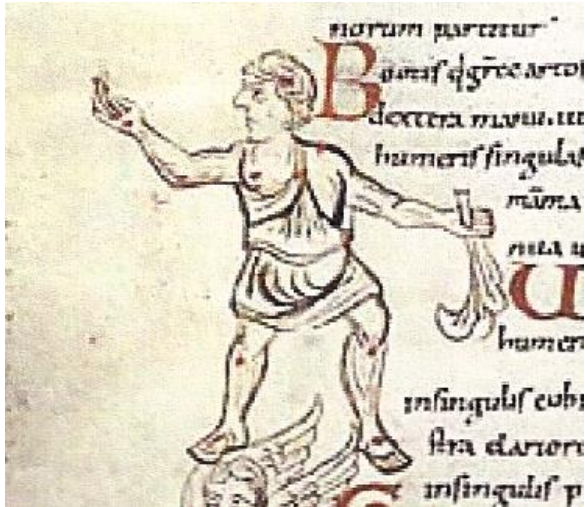 norum partitur
Bootis q̄ grece arcto
dextera manu
humeris singulas
māma
nita
U
humeri
insingulis cubi
stra clariori
insingulis p